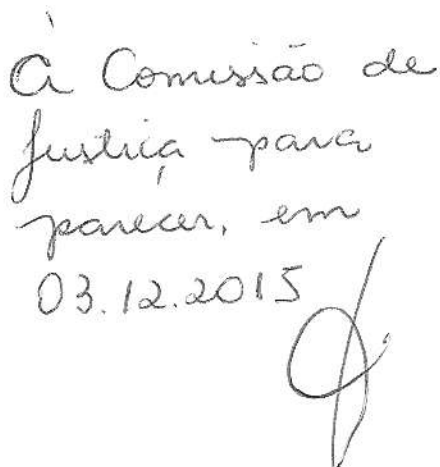 À Comissão de
Justiça para
parecer, em
03.12.2015